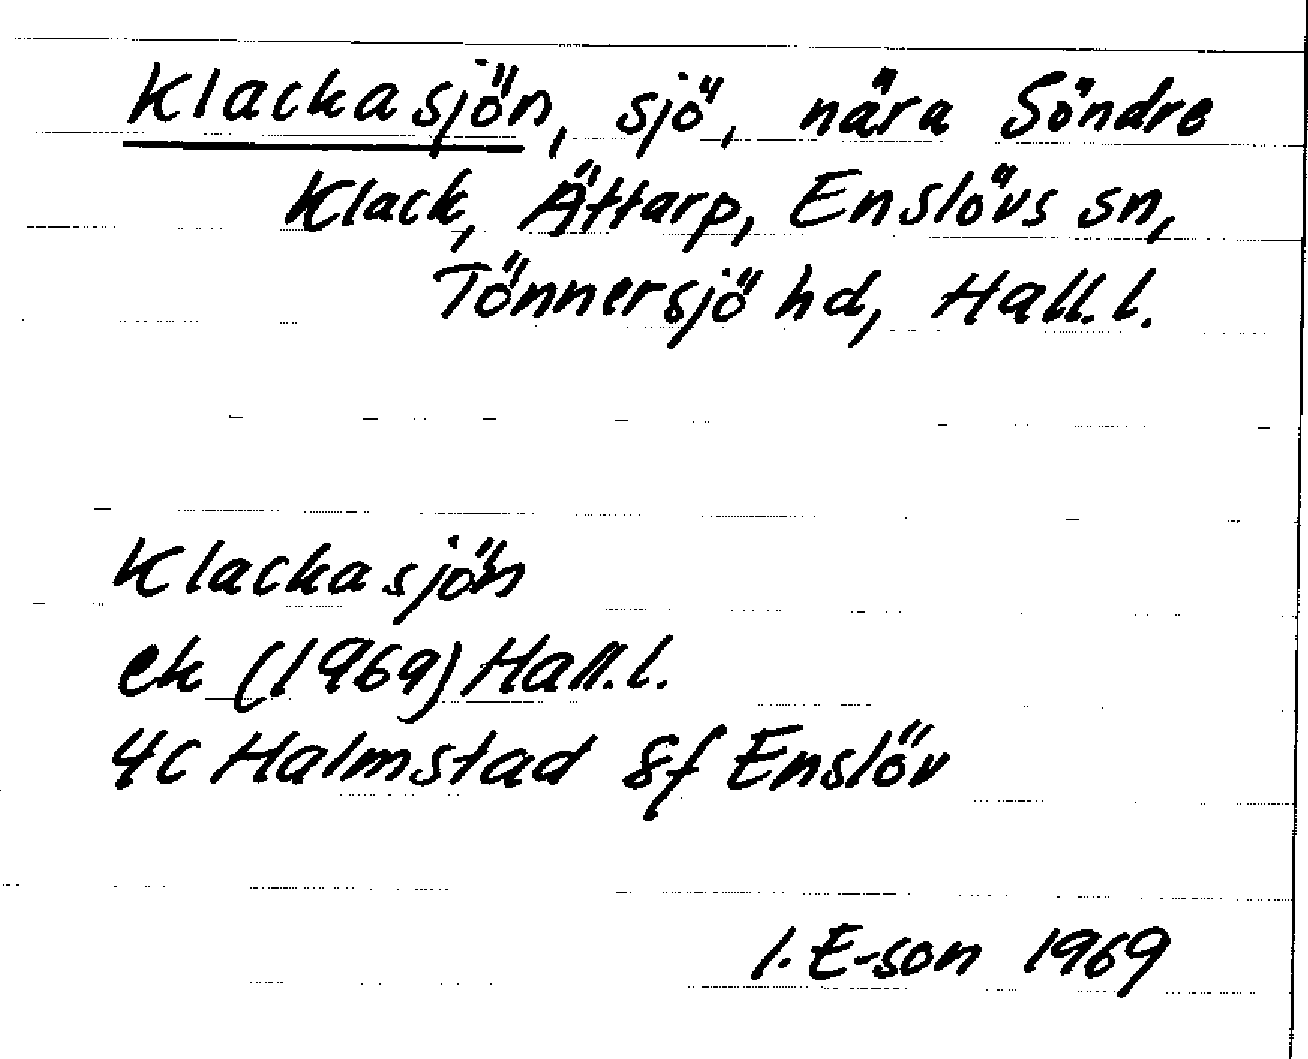 Klackasjön, sjö, nära Söndre
Klack, Ättarp, Enslövs sn,
Tönnersjö hd, Hall. l.
Klackasjön
ek (1969) Hall. l.
4C Halmstad 8f Enslöv
I. E-son 1969